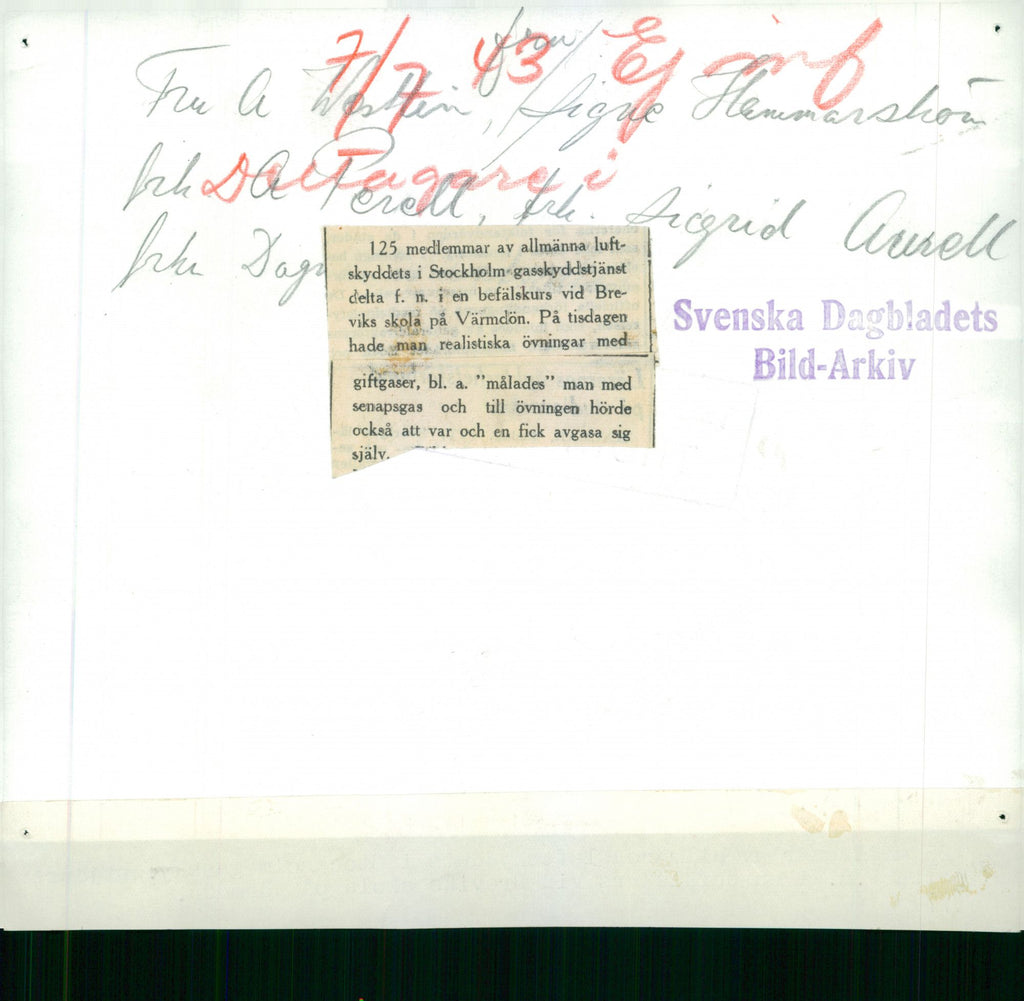 7/7 43 Ej inf
Fru A Westtin, fru Signe Hammarström
Deltagare i
frk A Perell, frk. Sigrid Aurell
frk Dag
125 medlemmar av allmänna luft-
skyddets i Stockholm gasskyddstjänst
delta f. n. i en befälskurs vid Bre-
viks skola på Värmdön. På tisdagen
hade man realistiska övningar med
giftgaser, bl. a. "målades" man med
senapsgas och till övningen hörde
också att var och en fick avgasa sig
själv.
Svenska Dagbladets
Bild-Arkiv